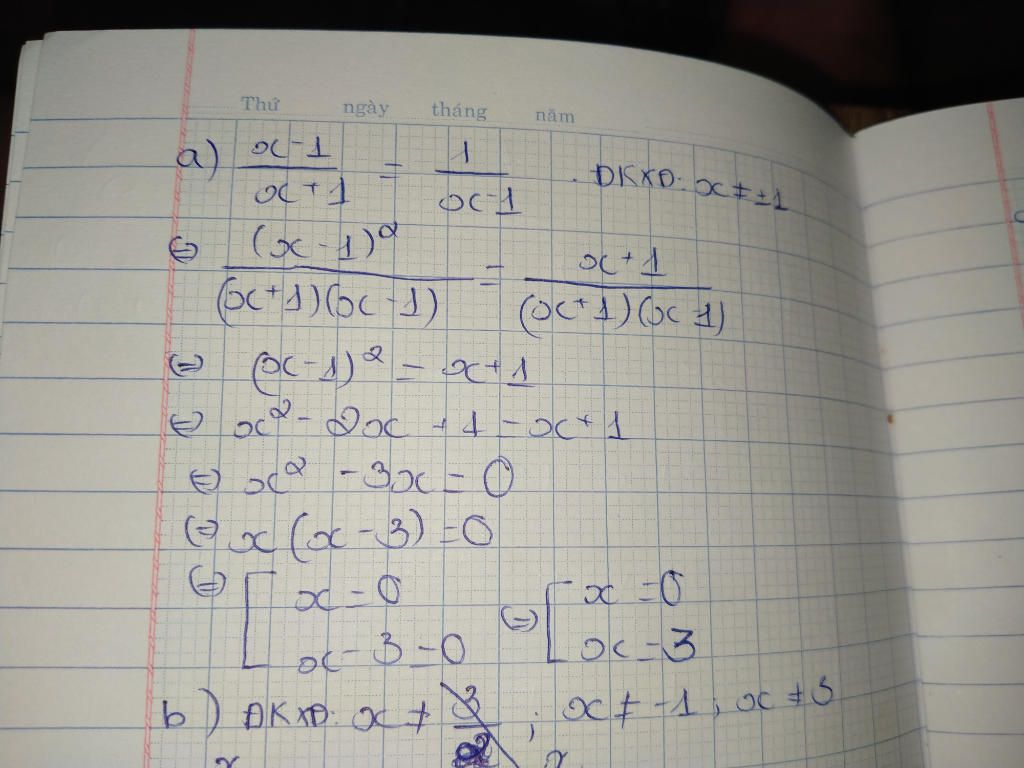 Thứ ngày tháng năm
a) \frac{x-1}{x+1} = \frac{1}{x-1} . ĐKXĐ: x ≠ ±1
⇔ \frac{(x-1)^2}{(x+1)(x-1)} = \frac{x+1}{(x+1)(x-1)}
⇔ (x-1)^2 = x+1
⇔ x^2 - 2x + 1 = x+1
⇔ x^2 - 3x = 0
⇔ x(x-3) = 0
⇔ [ x = 0 ; x - 3 = 0 ⇔ [ x = 0 ; x = 3
b) ĐKXĐ: x ≠ ; x ≠ -1 ; x ≠ 3